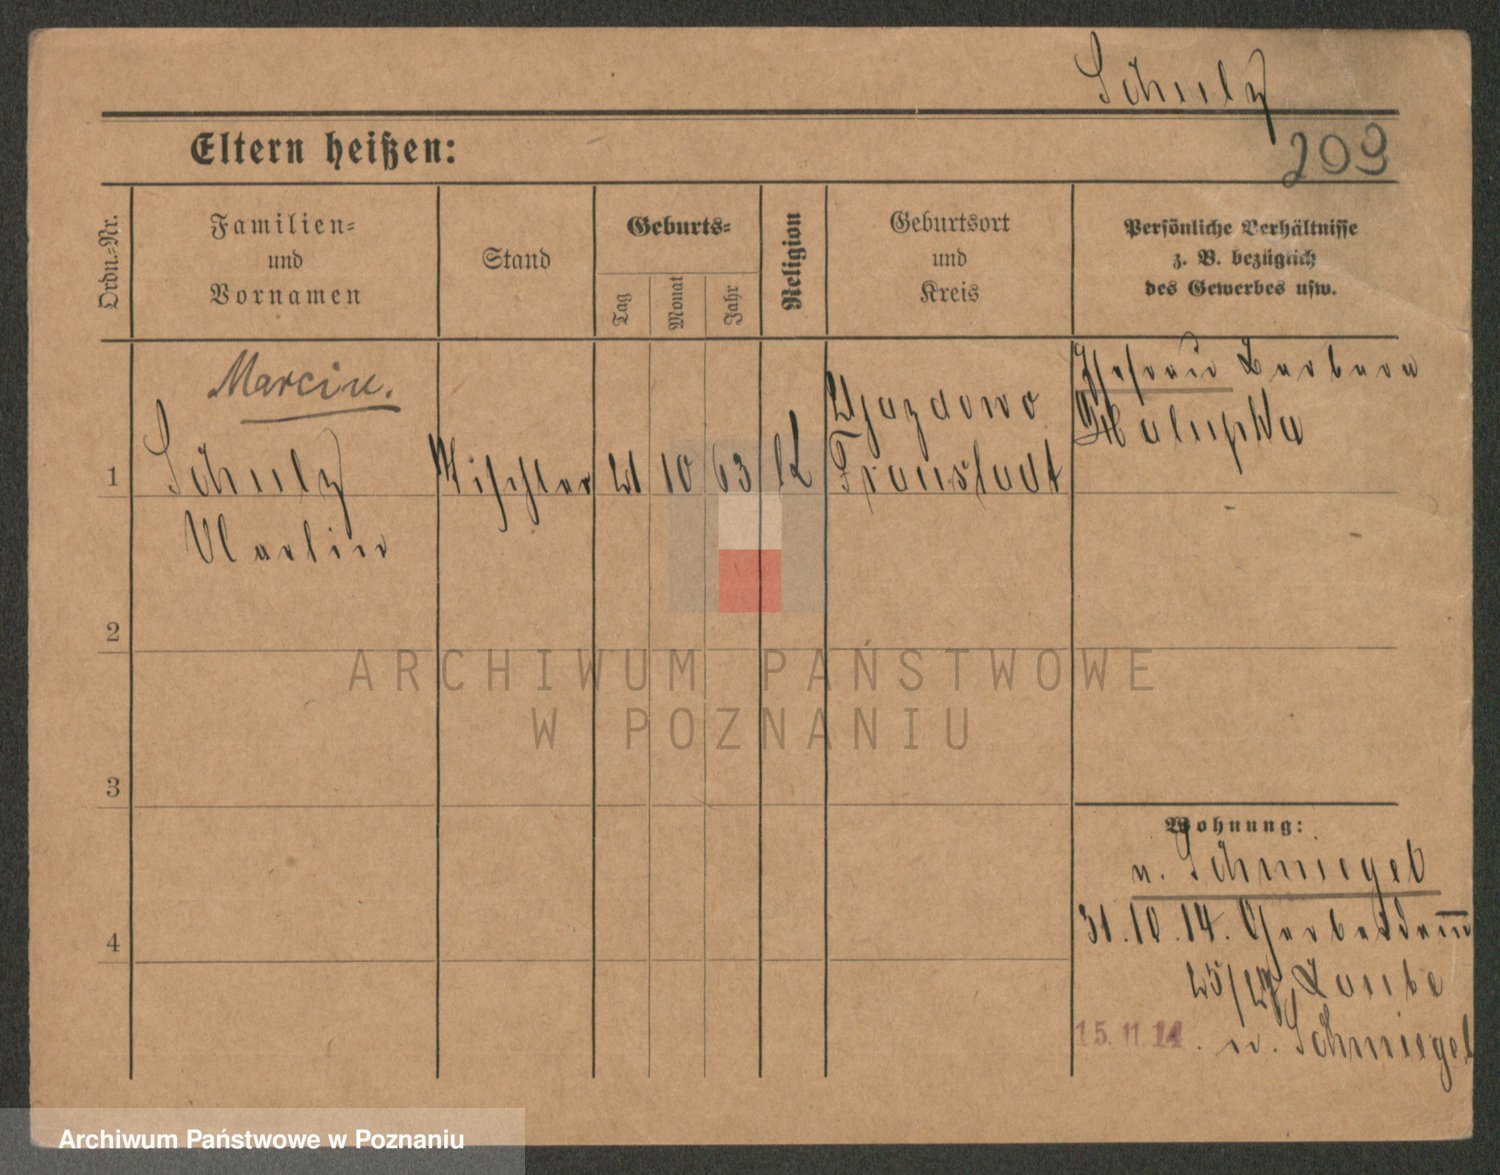 Schulz
Eltern heißen:
209
Ordn.-Nr.
Familien-
und
Vornamen
Stand
Geburts-
Tag
Monat
Jahr
Religion
Geburtsort
und
Kreis
Persönliche Verhältnisse
z. B. bezüglich
des Gewerbes usw.
Marcin.
1
Schulz
Martin
Tischler
21
10
63
K
Ujazdowo
Fraustadt
Ehefrau Barbara
Halupka
2
3
4
Wohnung:
n. Schmiegel
31.10.14. Gerberdamm
25/27 Laube
15.11.14. n. Schmiegel
ARCHIWUM PAŃSTWOWE
W POZNANIU
Archiwum Państwowe w Poznaniu